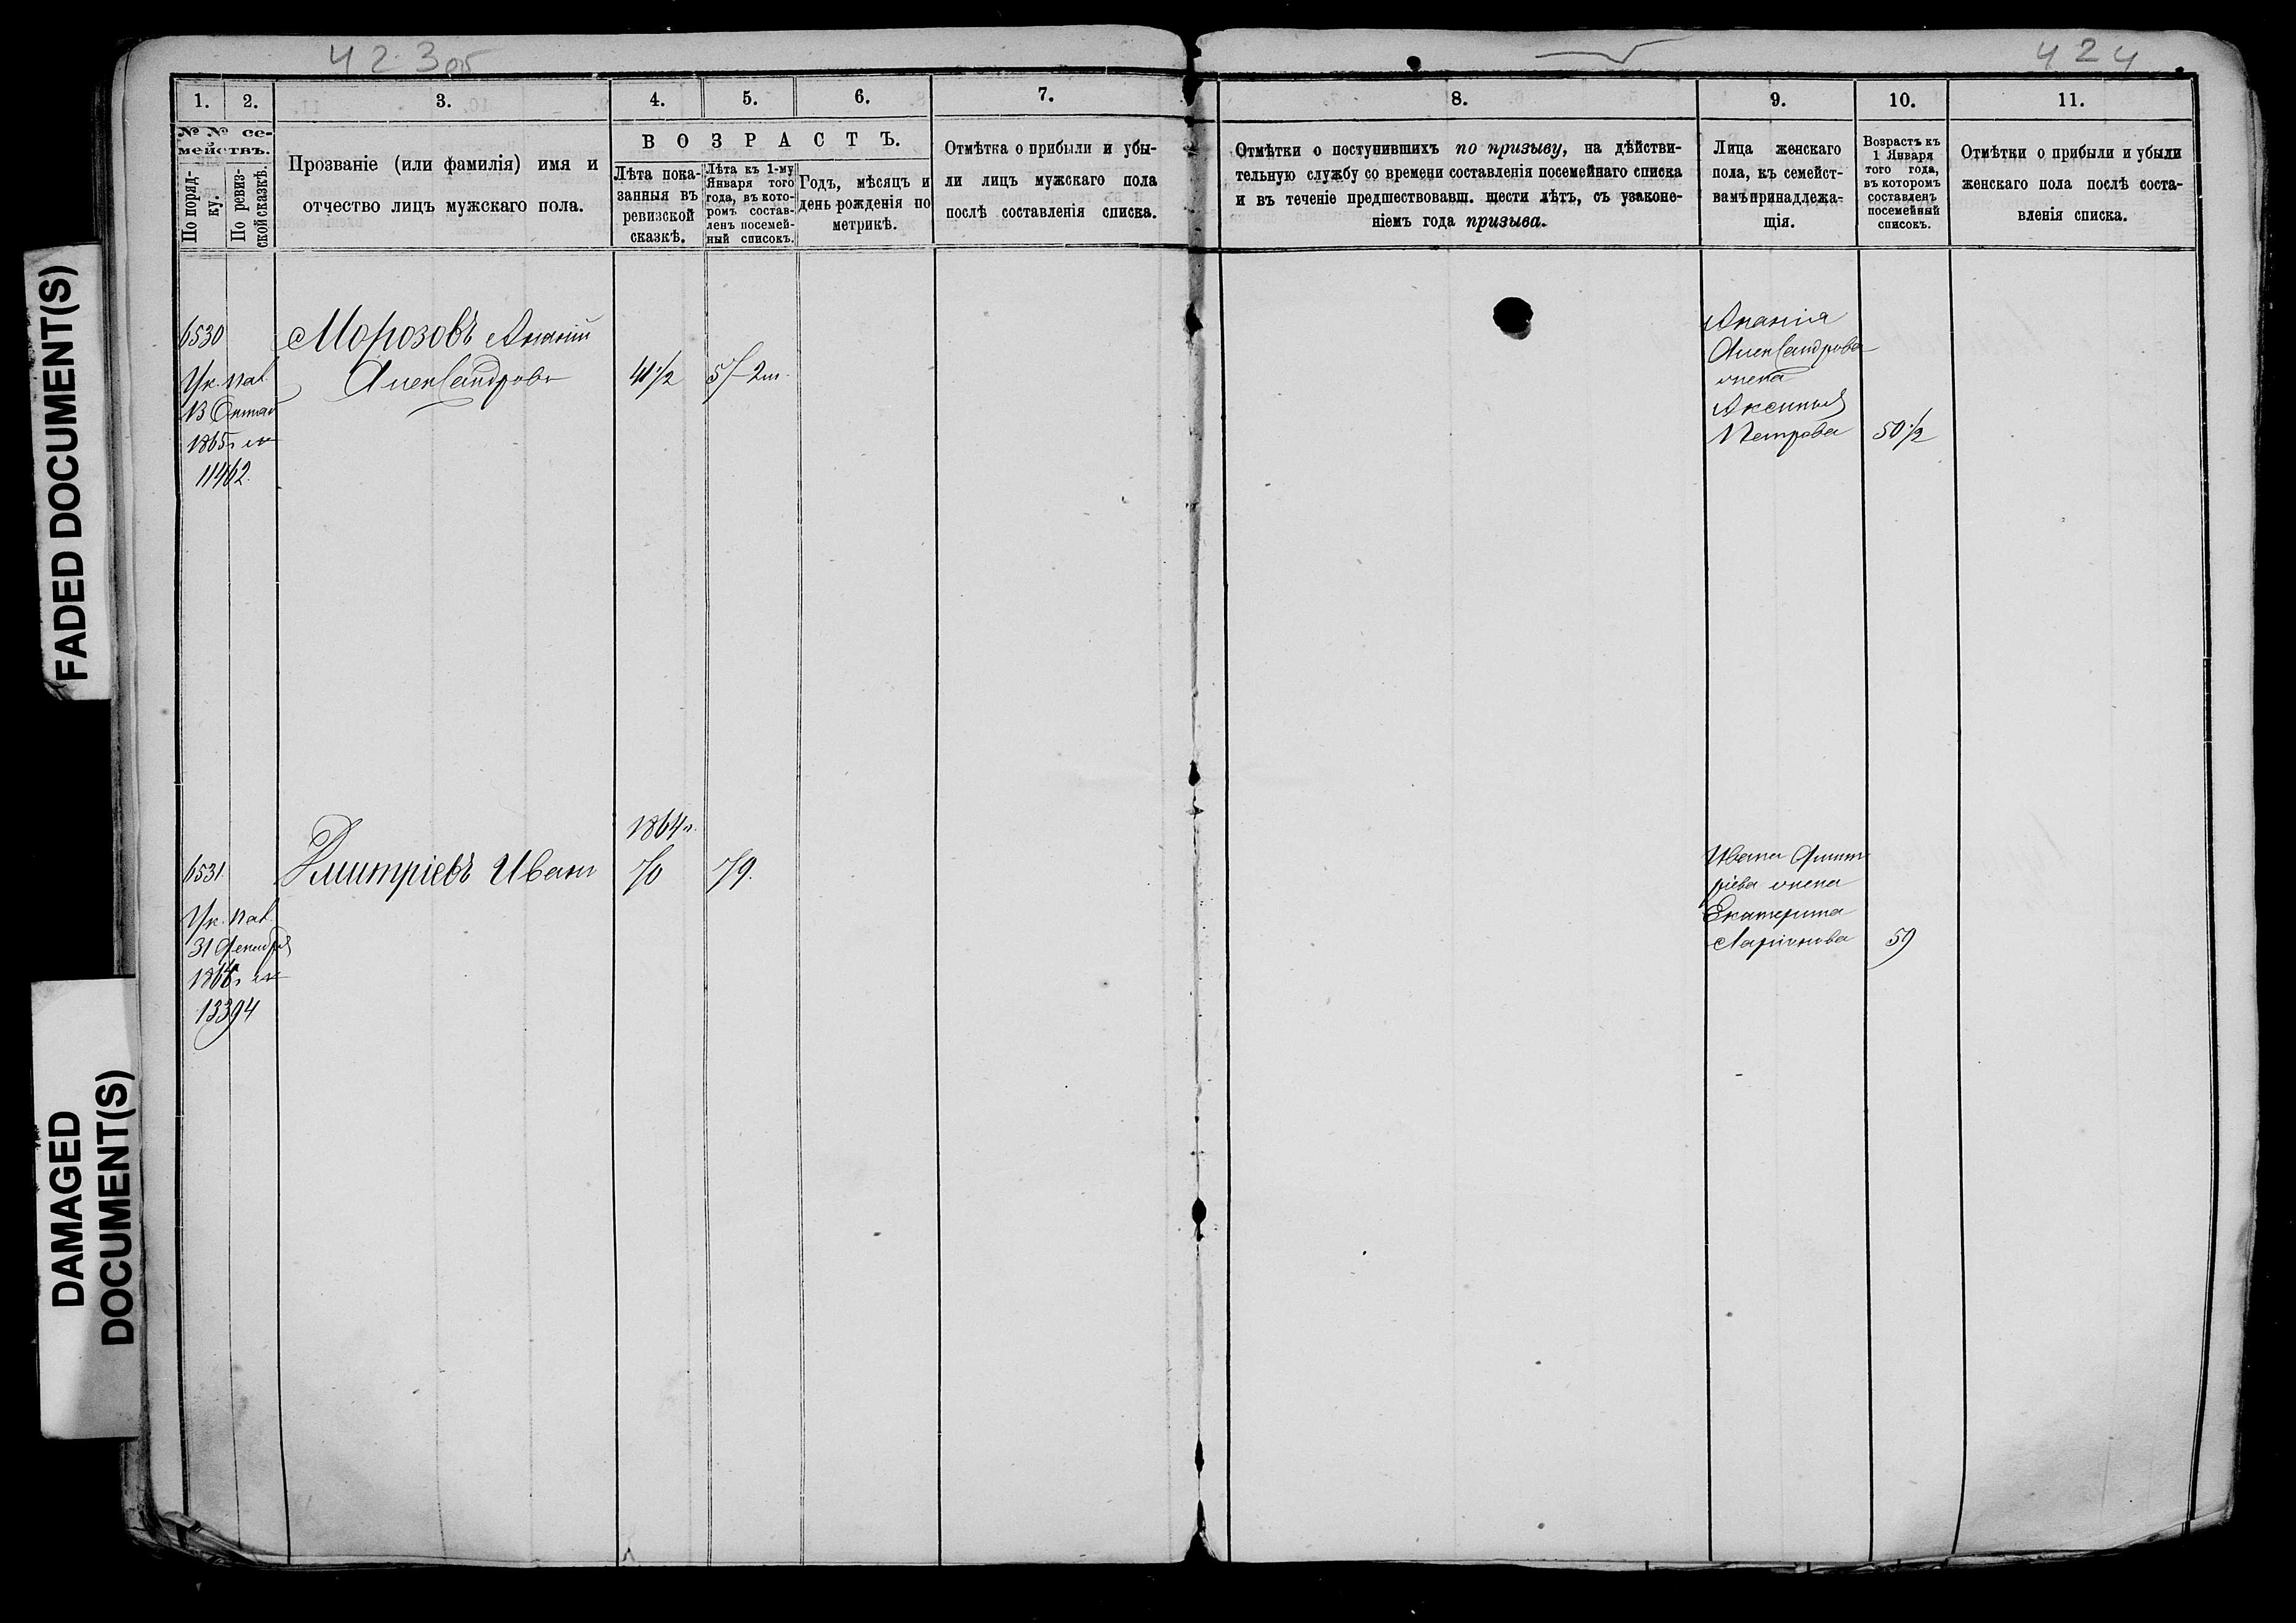 423об
424
FADED DOCUMENT(S)
DAMAGED
DOCUMENT(S)
1.
2.
3.
4.
5.
6.
7.
№ № се-
мействъ.
По поряд-
ку.
По ревиз-
ской сказкѣ.
Прозваніе (или фамилія) имя и
отчество лицъ мужскаго пола.
ВОЗРАСТЪ.
Лѣта пока-
занныя въ
ревизской
сказкѣ.
Лѣта къ 1-му
Января того
года, въ кото-
ромъ состав-
ленъ посемей-
ный списокъ.
Годъ, мѣсяцъ и
день рожденія по
метрикѣ.
Отмѣтка о прибыли и убы-
ли лицъ мужскаго пола
послѣ составленія списка.
8.
9.
10.
11.
Отмѣтки о поступившихъ по призыву, на дѣйстви-
тельную службу со времени составленія посемейнаго списка
и въ теченіе предшествовавш. шести лѣтъ, съ узаконе-
ніемъ года призыва.
Лица женскаго
пола, къ семейст-
вамъ принадлежа-
щія.
Возрастъ къ
1 Января
того года,
въ которомъ
составленъ
посемейный
списокъ.
Отмѣтки о прибыли и убыли
женскаго пола послѣ соста-
вленія списка.
6530
Ук. пал.
13 Октяб
1865г
11462.
Морозовъ Ананій
Александровъ
41½
Ананія
Александрова
жена
Аксинья
Петрова
50½
1864г.
6531
Ук. пал.
31 Декабря
1864г
13394
Дмитріевъ Иванъ
70
79.
Ивана Дмит
ріева жена
Екатерина
Ларіонова
59